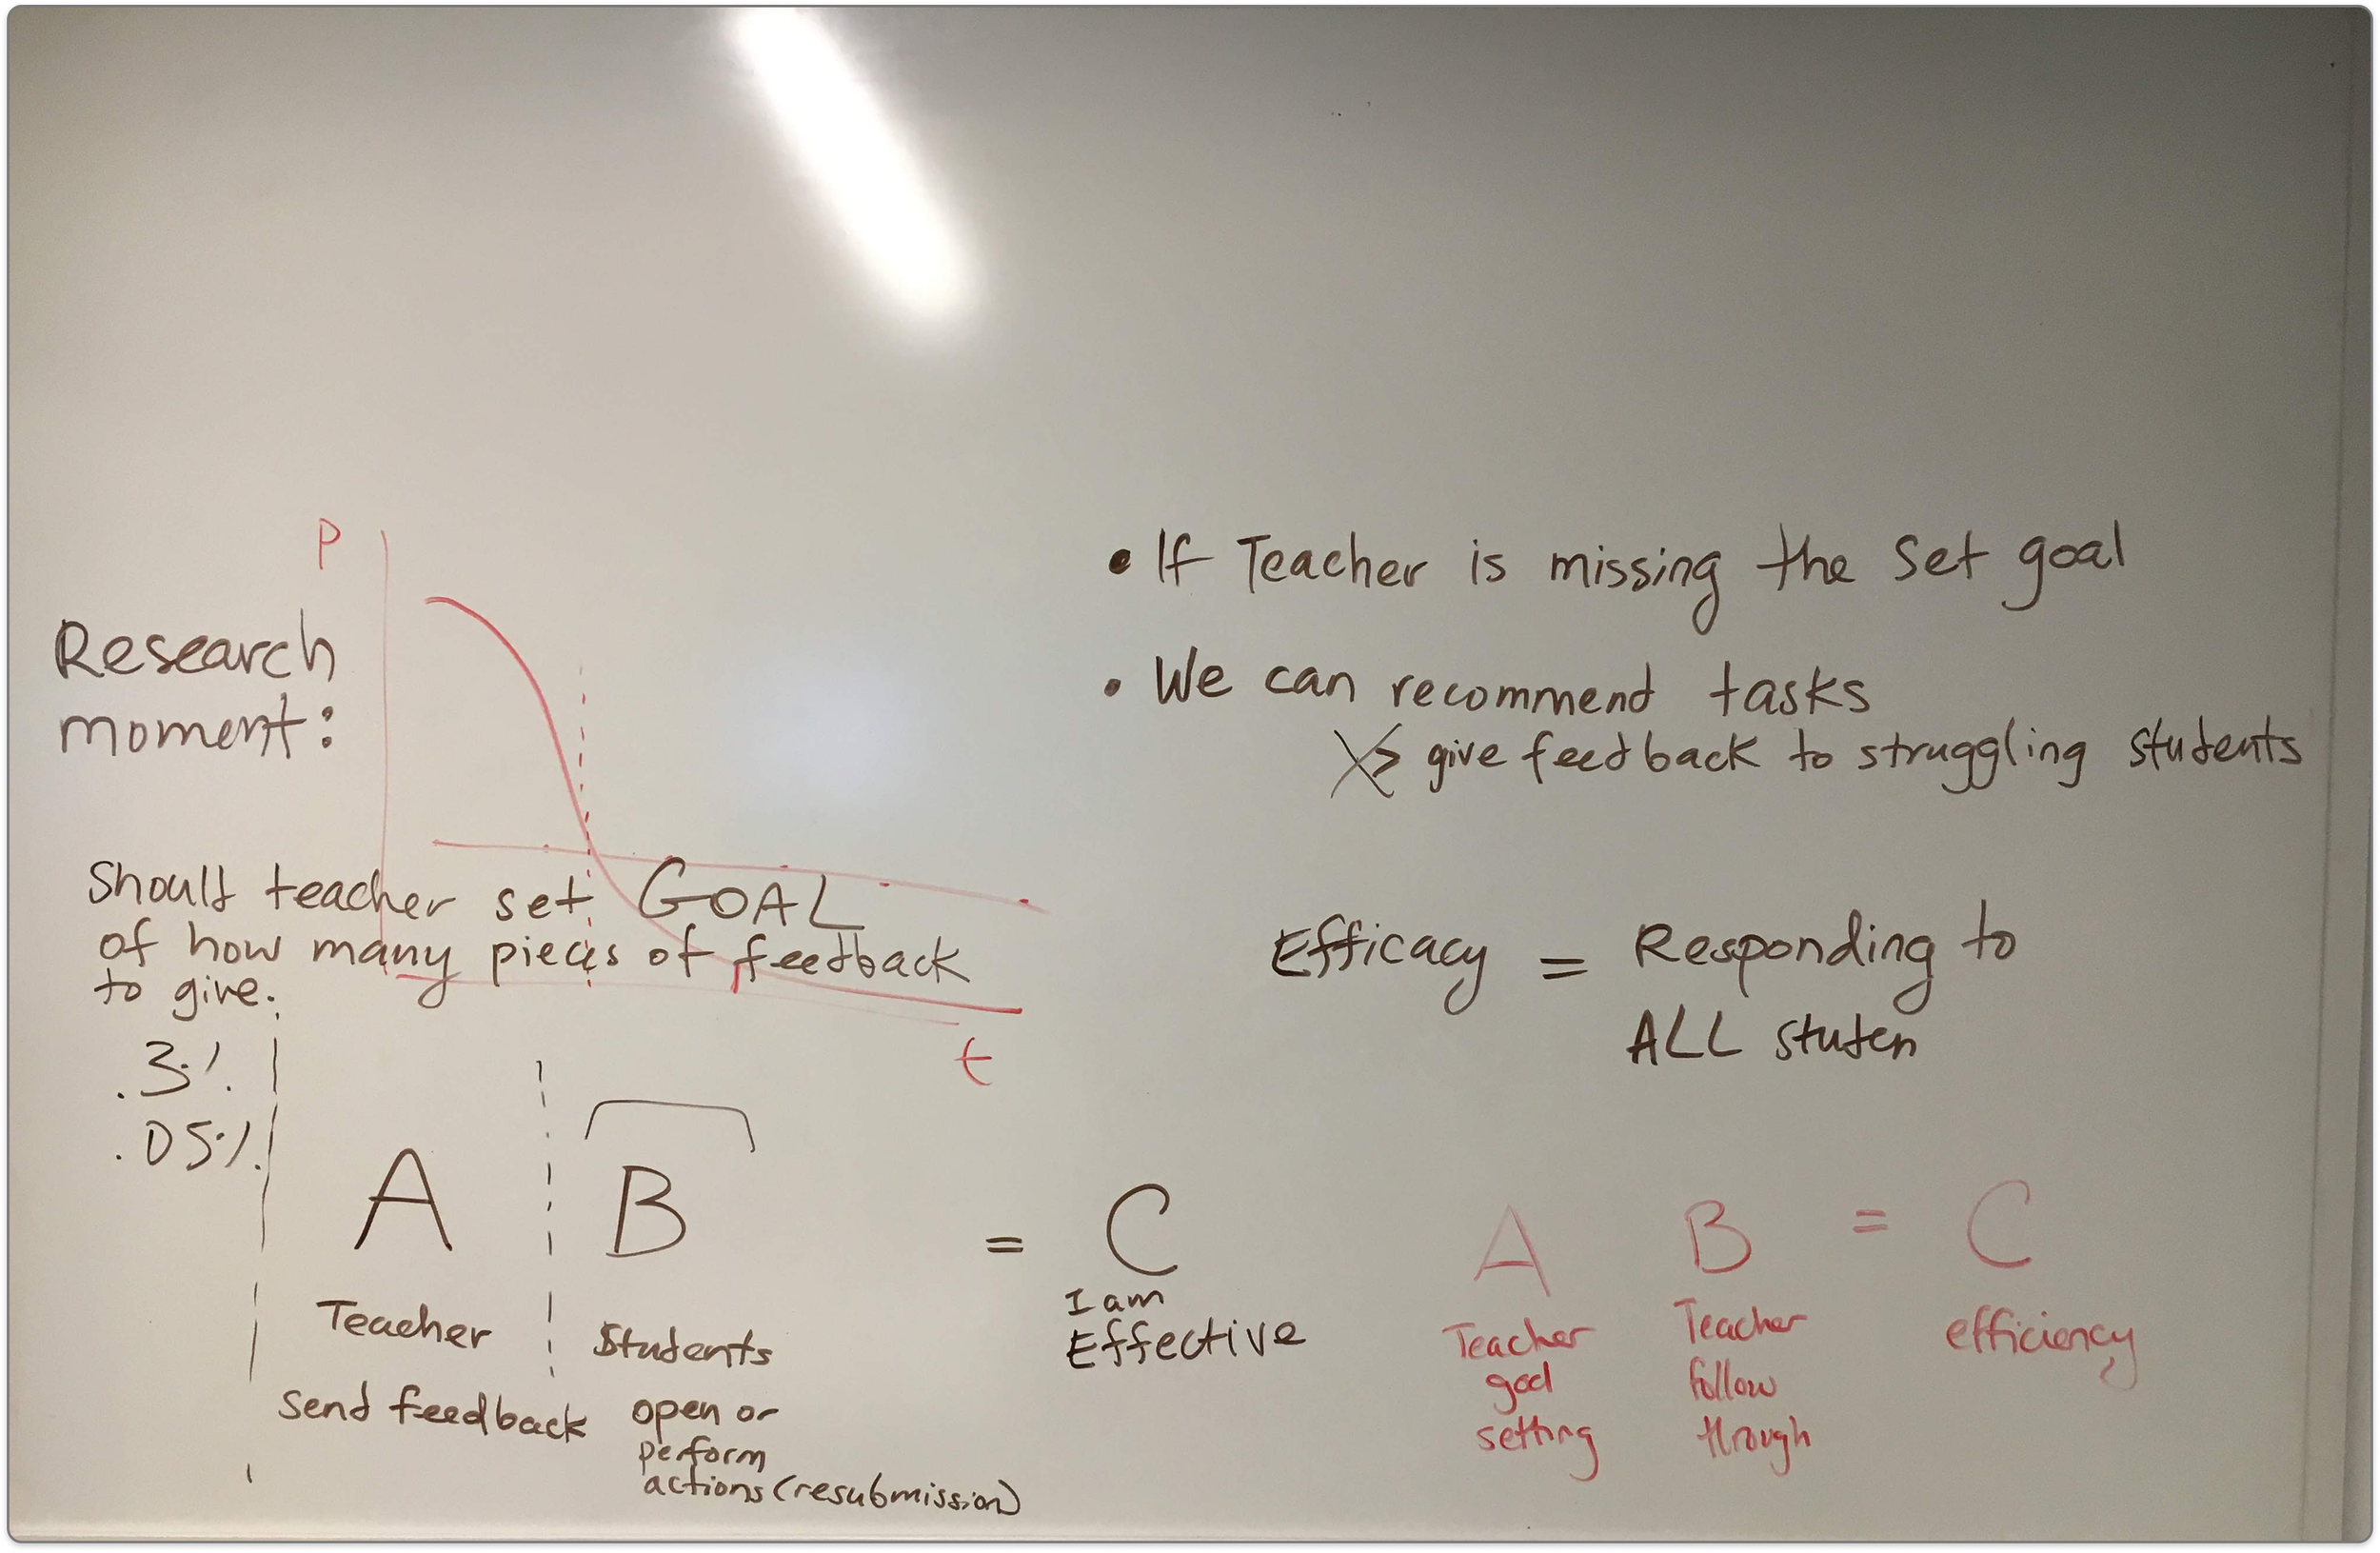 P
Research
moment:
Should teacher set GOAL
of how many pieces of feedback
to give.
t
.3%.
.05%.
A B = C
Teacher
Students
I am
Effective
send feedback
open or
perform
actions (resubmission)
• If Teacher is missing the set goal
• We can recommend tasks
give feedback to struggling students
Efficacy = Responding to
ALL studen
A B = C
Teacher
goal
setting
Teacher
follow
through
efficiency